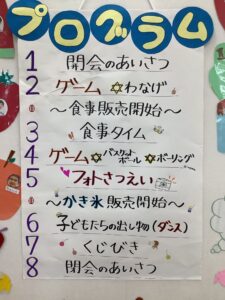 プログラム
1 開会のあいさつ
2 ゲーム ✡わなげ
～食事販売開始～
3 食事タイム
4 ゲーム ✡バスケットボール ✡ボーリング
5 フォトさつえい
～かき氷販売開始～
6 子どもたちの出し物(ダンス)
7 くじびき
8 閉会のあいさつ